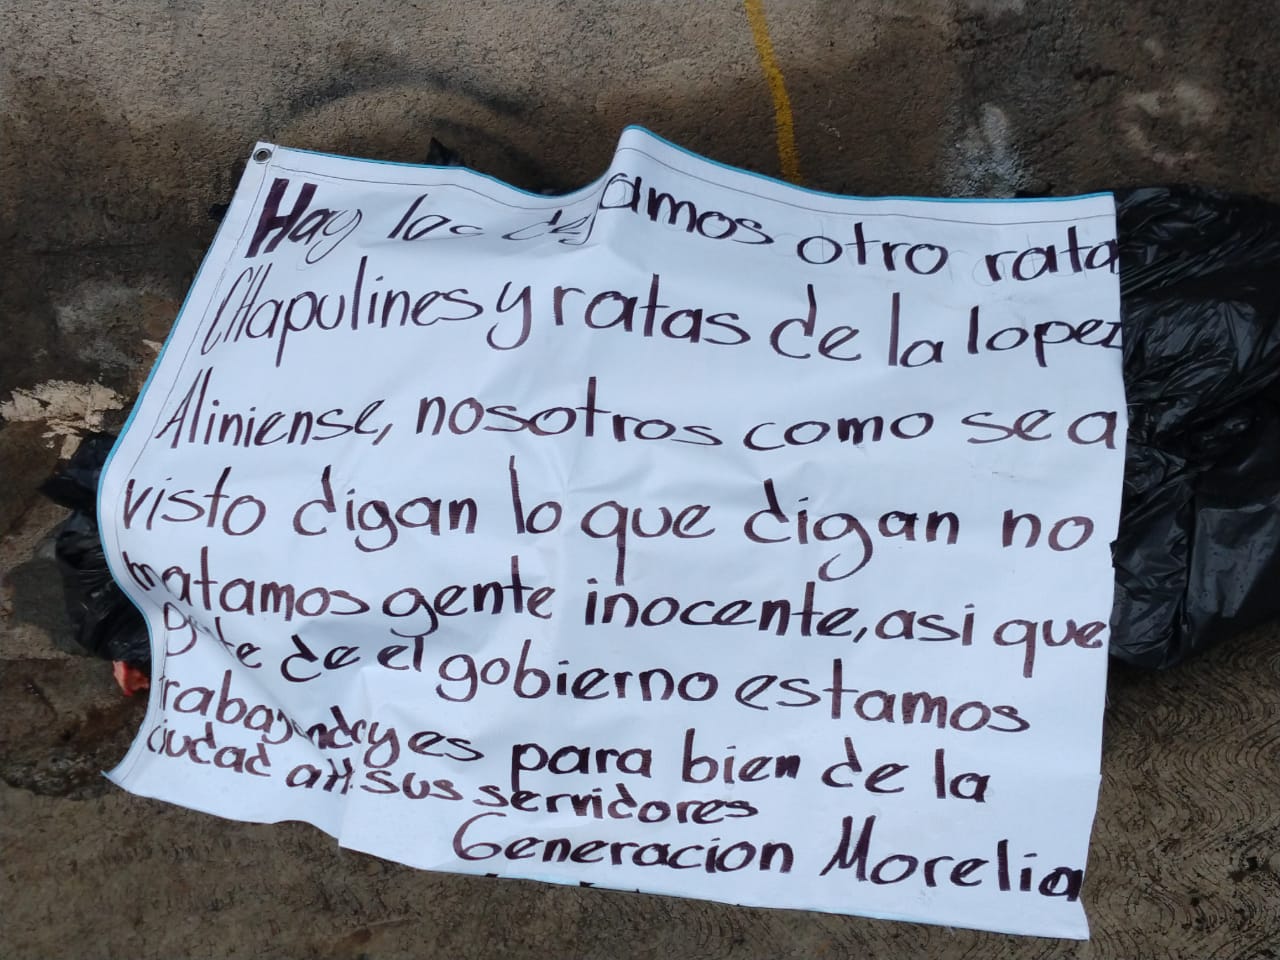 Hay les dejamos otro rata
CHapulines y ratas de la lopez
Aliniense, nosotros como se a
visto digan lo que digan no
matamos gente inocente, asi que
de el gobierno estamos
y es para bien de la
ciudad att. sus servidores
Generacion Morelia